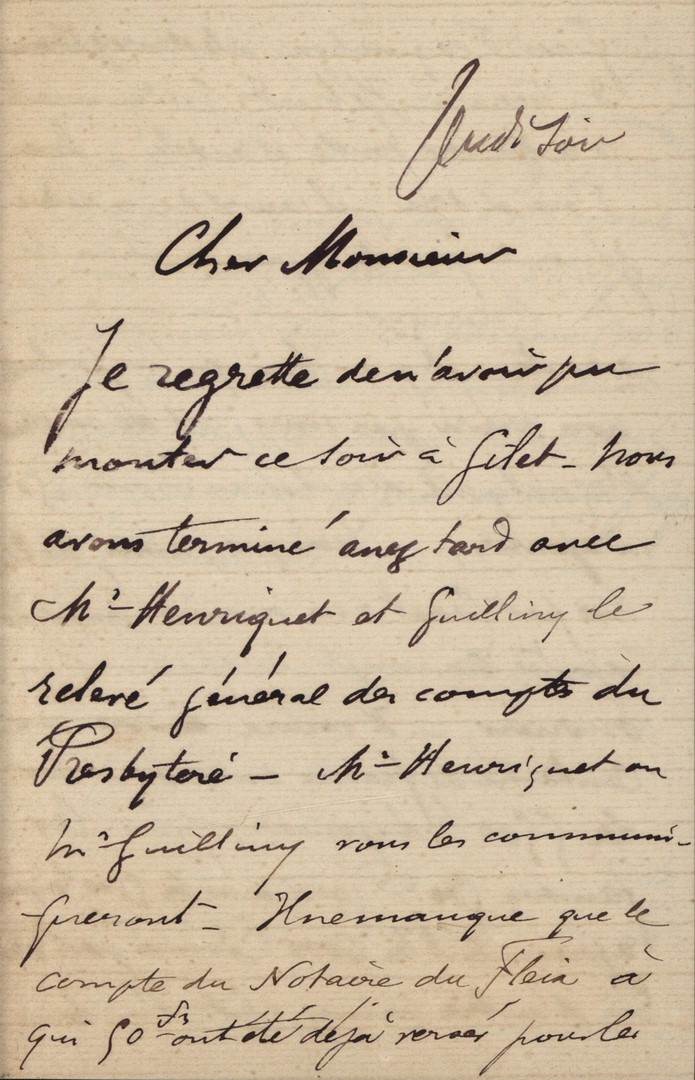 Jeudi soir
Cher Monsieur
Je regrette de n'avoir pu
monter ce soir à Gilet - Nous
avons terminé assez tard avec
Mr Henriquet et Guilliny le
relevé général des comptes du
Presbyteré - Mr Henriquet ou
Mr Guilliny vous les communi-
queront - Il ne manque que le
compte du Notaire du Fleix à
qui 50 frs ont été déjà versés pour les